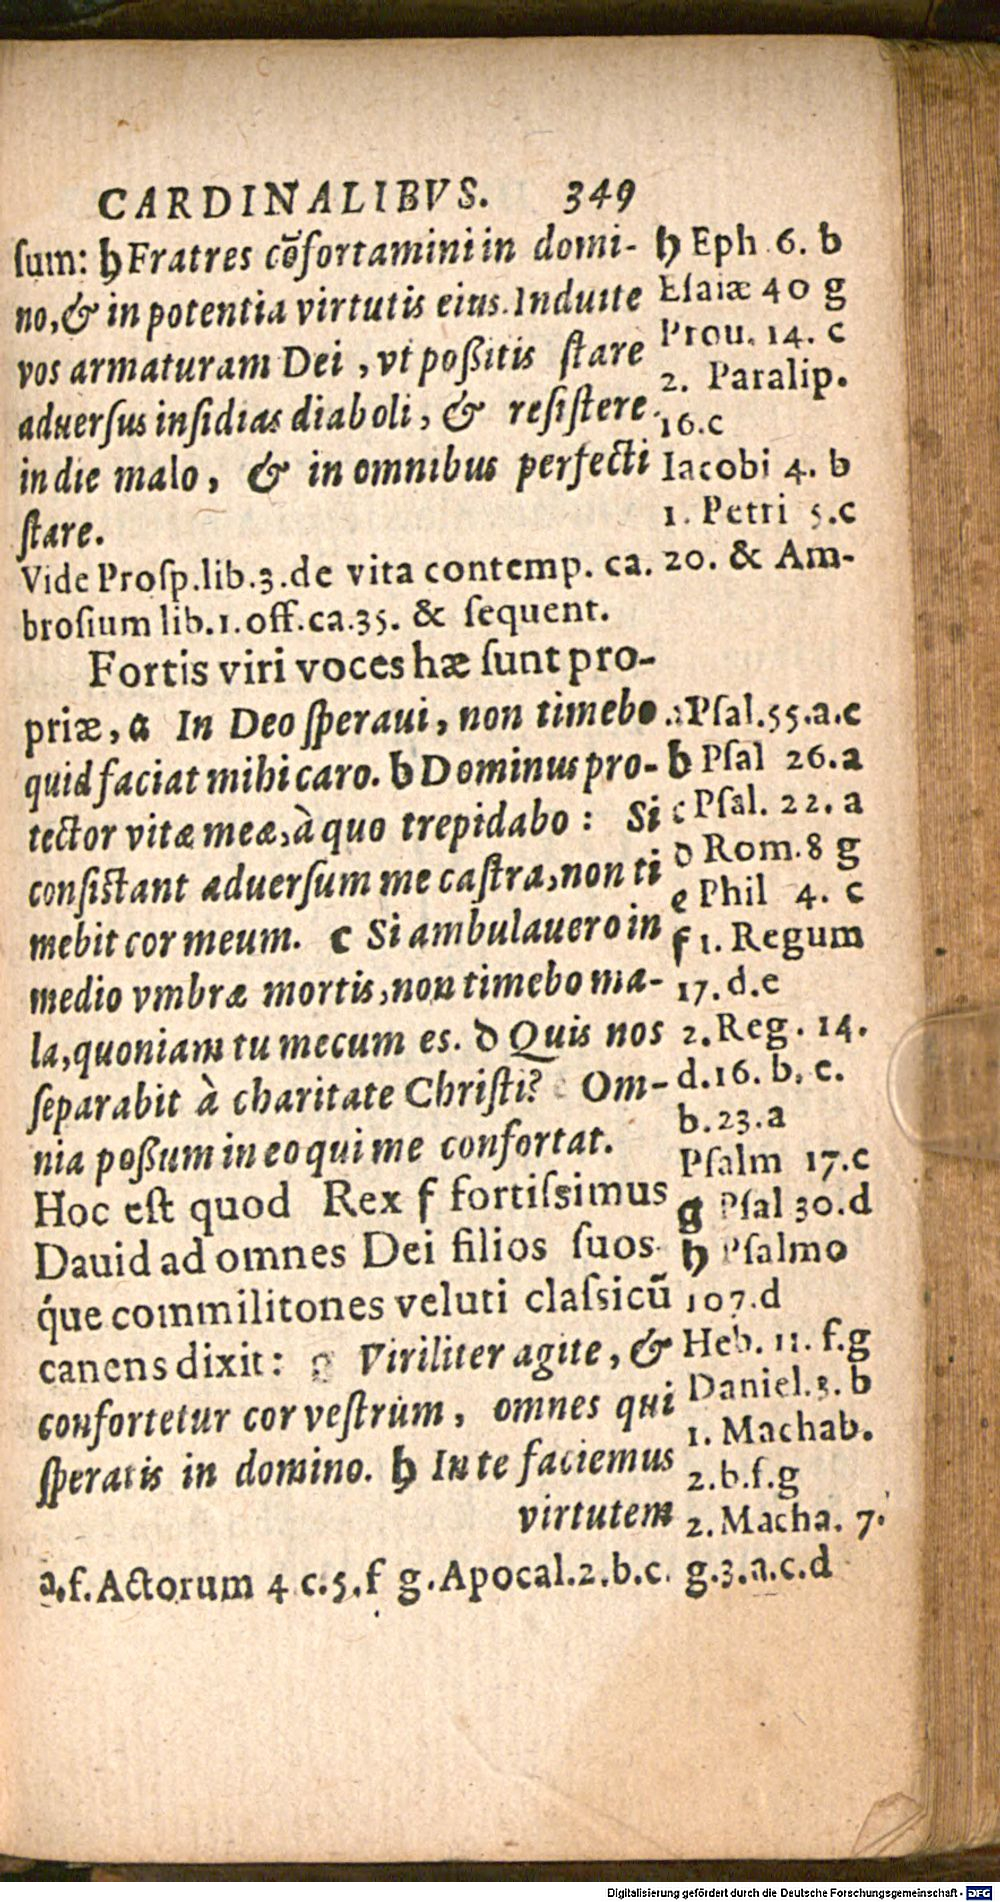 CARDINALIBVS. 349
ſum: h Fratres cõfortamini in domi-
no, & in potentia virtutis eius. Induite
vos armaturam Dei, vt poßitis ſtare
aduerſus inſidias diaboli, & reſiſtere
in die malo, & in omnibus perfecti
ſtare.
h Eph 6. b
Eſaiæ 40 g
Prou. 14. c
2. Paralip.
16.c
Iacobi 4. b
1. Petri 5.c
Vide Proſp.lib.3.de vita contemp. ca. 20. & Am-
broſium lib.1.off.ca.35. & ſequent.
Fortis viri voces hæ ſunt pro-
priæ, a In Deo ſperaui, non timebo
quid faciat mihi caro. b Dominus pro-
tector vitæ meæ, à quo trepidabo: Si
conſiſtant aduerſum me caſtra, non ti
mebit cor meum. c Si ambulauero in
medio vmbræ mortis, non timebo ma-
la, quoniam tu mecum es. d Quis nos
ſeparabit à charitate Chriſti? e Om-
nia poßum in eo qui me confortat.
Hoc eſt quod Rex f fortiſsimus
Dauid ad omnes Dei filios ſuos
q́ue commilitones veluti claſsicũ
canens dixit: g Viriliter agite, &
confortetur cor veſtrum, omnes qui
ſperatis in domino. h In te faciemus
virtutem
a Pſal.55.a.c
b Pſal 26.a
c Pſal. 22. a
d Rom.8 g
e Phil 4. c
f 1. Regum
17.d.e
2. Reg. 14.
d.16. b, c.
b.23.a
Pſalm 17.c
g Pſal 30.d
h Pſalmo
107.d
Heb. 11. f.g
Daniel.3. b
1. Machab.
2.b.f.g
2. Macha. 7.
a.f. Actorum 4 c.5.f g. Apocal.2.b.c. g.3.a.c.d
Digitalisierung gefördert durch die Deutsche Forschungsgemeinschaft - DFG